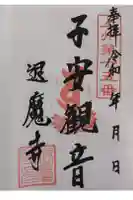 奉拝 令和 年 月 日
子安観音
退魔寺